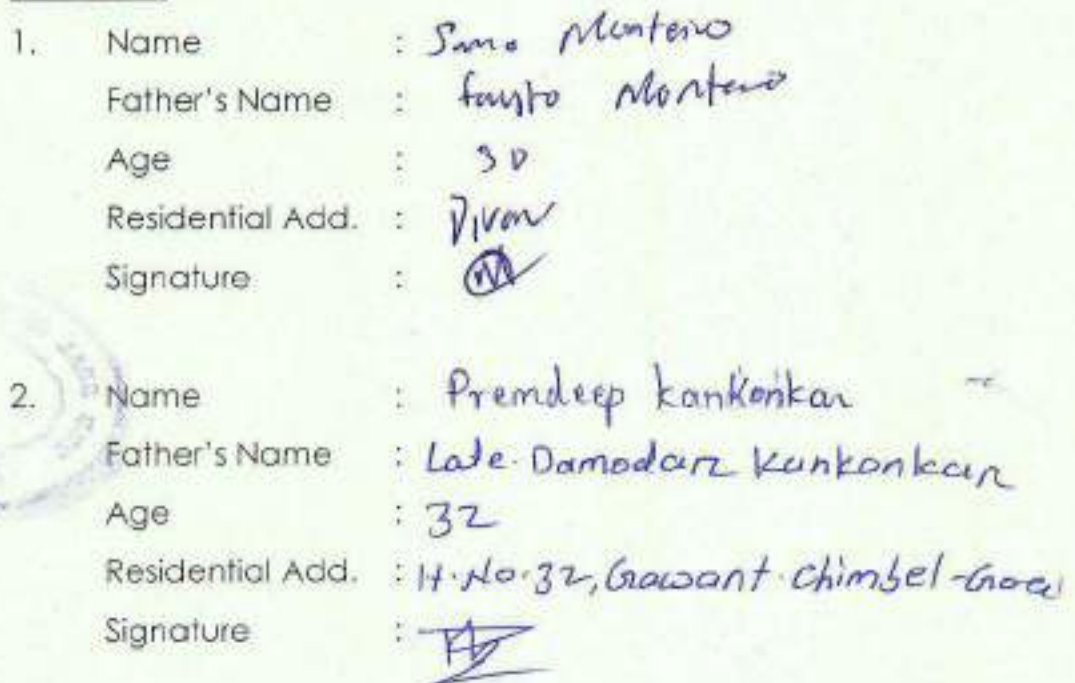 1. Name : Monteiro
Father's Name : fausto Monteiro
Age : 30
Residential Add. : Divar
Signature :
2. Name : Premdeep kankonkar
Father's Name : Late. Damodar Kankonkar
Age : 32
Residential Add. : H.No.32, Gawant Chimbel-Goa
Signature :